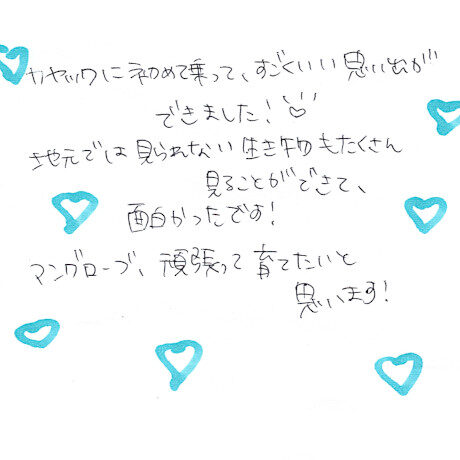 カヤックに初めて乗って、すごくいい思い出が
できました！
地元では見られない生き物もたくさん
見ることができて、
面白かったです！
マングローブ、頑張って育てたいと
思います！